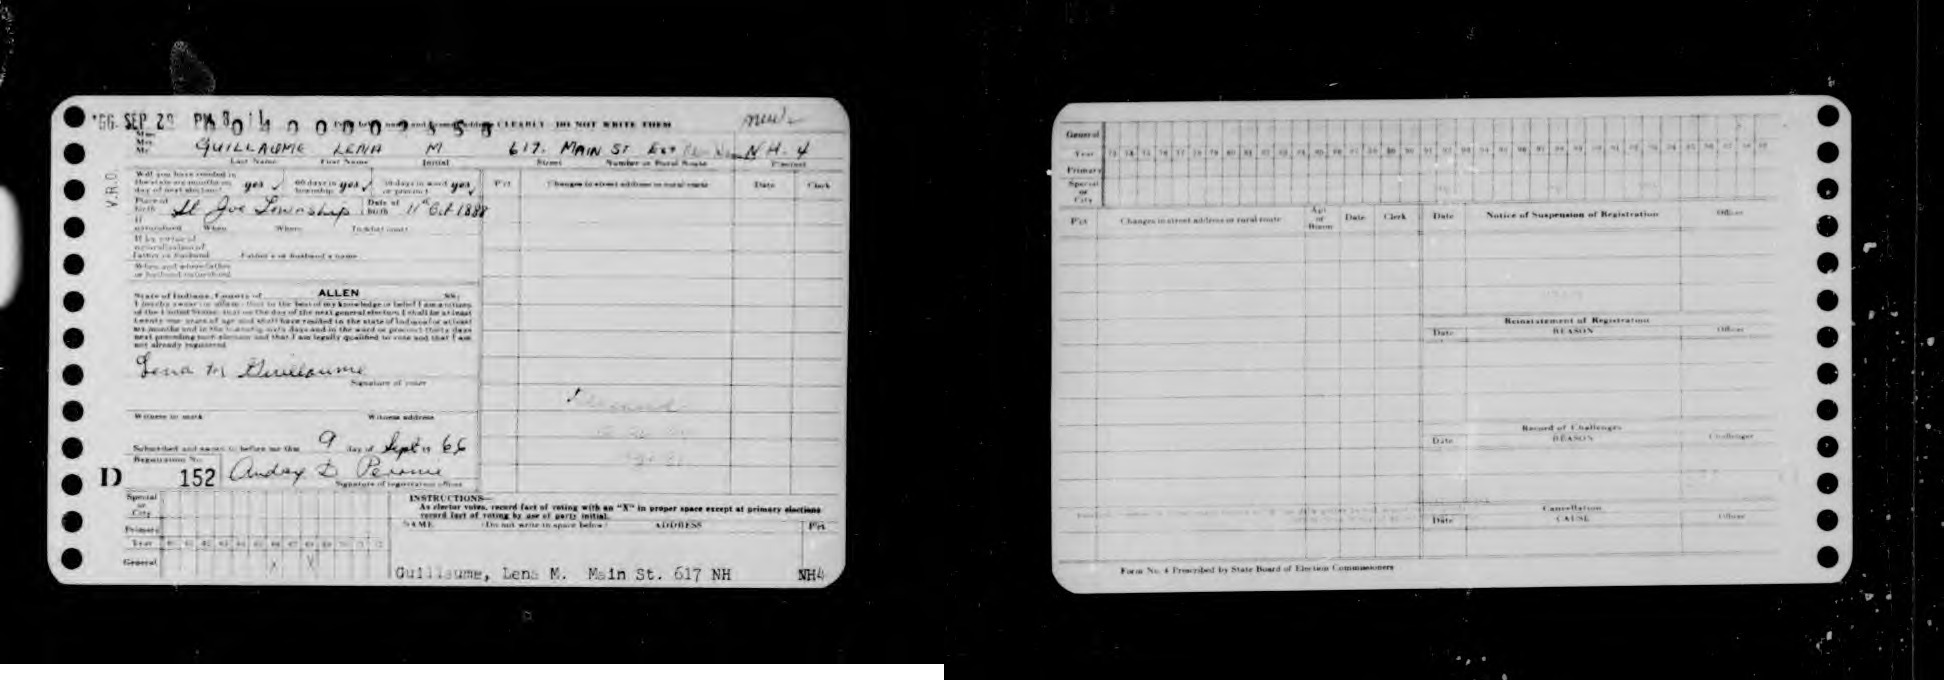 '66. SEP 29 PM
CLEARLY DO NOT WRITE THEM
new
Miss
Mrs.
Mr.
GUILLAUME LENA M 617. MAIN ST EXT N.H. 4
Last Name First Name Initial Street Number or Rural Route Precinct
V.R.O.
Will you have resided in
the state six months on
day of next election? yes ✓ 60 days in
township yes ✓ 30 days in ward
or precinct yes ✓
Pct Changes in street address or rural route Date Clerk
Place of
birth St Joe Township Date of
birth 11th Oct 1888
If
naturalized When Where
If by virtue of
naturalization of
Father or husband Father's or husband's name
When and where father
or husband naturalized
State of Indiana, County of ALLEN SS:
I hereby swear or affirm that to the best of my knowledge or belief I am a citizen
of the United States, that on the day of the next general election I shall be at least
twenty one years of age and shall have resided in the state of Indiana for at least
six months and in the township sixty days and in the ward or precinct thirty days
next preceding such election and that I am legally qualified to vote and that I am
not already registered
Lena M Guillaume
Signature of voter
Witness to mark Witness address
Subscribed and sworn to before me this 9 day of Sept 19 66
Registration No.
D 152 Audrey D
Signature of registration officer
Special
or
City
Primary
Year
General X X
INSTRUCTIONS—
As elector votes, record fact of voting with an "X" in proper space except at primary elections
record fact of voting by use of party initial.
NAME (Do not write in space below) ADDRESS Pct
Guillaume, Lena M. Main St. 617 NH NH4
General
Year 73 74 75 76 77 78 79 80 81 82 83 84 85 86 87 88 89 90 91 92 93 94 95 96 97 98 99
Primary
Special
or
City
Pct Changes in street address or rural route Apt
or
Room Date Clerk Date Notice of Suspension of Registration Officer
Reinstatement of Registration
Date REASON Officer
Record of Challenges
Date REASON Challenger
Cancellation
Date CAUSE Officer
Form No. 4 Prescribed by State Board of Election Commissioners